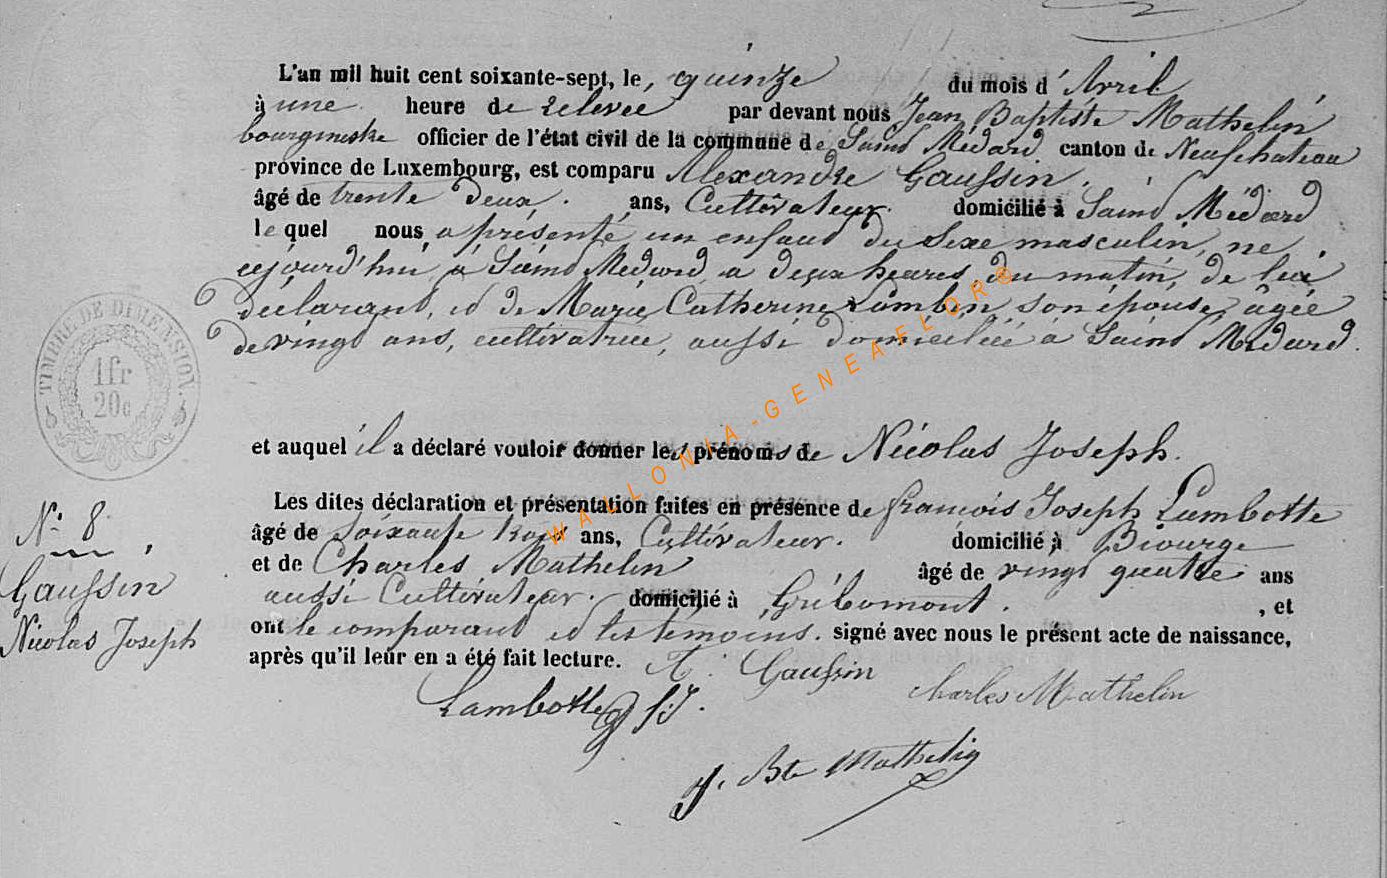 L'an mil huit cent soixante-sept, le, quinze du mois d'Avril
à une heure de relevée par devant nous Jean Baptiste Mathelin
bourgmestre officier de l'état civil de la commune de Saint Médard canton de Neufchateau
province de Luxembourg, est comparu Alexandre Gaussin.
âgé de trente deux. ans, Cultivateur. domicilié à Saint Médard
lequel nous a présenté un enfant du Sexe masculin, né
cejourd'hui, à Saint Médard a deux heures du matin, de lui
déclarant, et de Marie Catherine son épouse, âgée
de vingt ans, cultivatrice, aussi domiciliée à Saint Médard.
et auquel il a déclaré vouloir donner les prénoms de Nicolas Joseph.
Les dites déclaration et présentation faites en présence de françois Joseph Lambotte
âgé de Soixante ans, Cultivateur. domicilié à Biourge
et de Charles Mathelin âgé de vingt quatre ans
aussi Cultivateur. domicilié à Gribomont. , et
ont le comparant et les témoins. signé avec nous le présent acte de naissance,
après qu'il leur en a été fait lecture. A. Gaussin
Lambotte f.J. Charles Mathelin
J. Bte Mathelin
TIMBRE DE DIMENSION.
1fr
20c
N° 8
Gaussin
Nicolas Joseph
WALLONIA-GENEAFLOR®